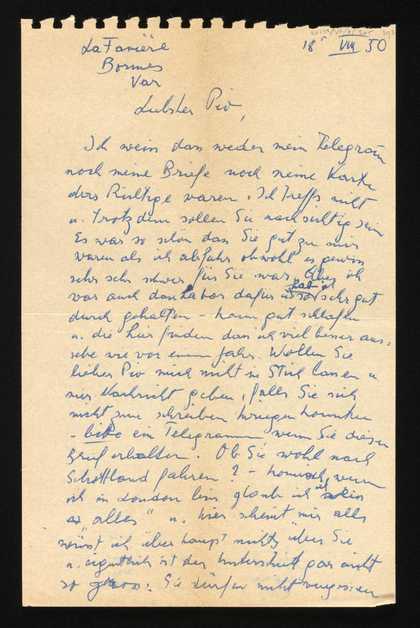 La Favière
18. VIII 50
Bormes
Var
Liebster Pio,
Ich weiss dass weder mein Telegram
noch meine Briefe noch meine Karte
das Richtige waren. Ich treffs nicht
u. trotzdem sollen Sie nachsichtig sein
Es war so schön dass Sie gut zu mir
waren als ich abfuhr obwohl es gewiss
sehr sehr schwer für Sie war. Aber ich
war auch dankbar dafür u. hab so sehr gut
durch gehalten - kann gut schlafen
u. die hier finden dass ich viel besser aus-
sehe wie vor einem Jahr. Wollen Sie
lieber Pio mich nicht im Stich lassen u
mir Nachricht geben, falls Sie sich
nicht zum schreiben kriegen könnten
- bitte ein Telegramm wenn Sie diesen
Brief erhalten. Ob Sie wohl nach
Schottland fahren? - komisch wenn
ich in London bin glaube ich
"alles" u. hier scheint mir als
wüsst ich überhaupt nichts über Sie
u. eigentlich ist der Unterschied gar nicht
so gross: Sie dürfen nicht vergessen